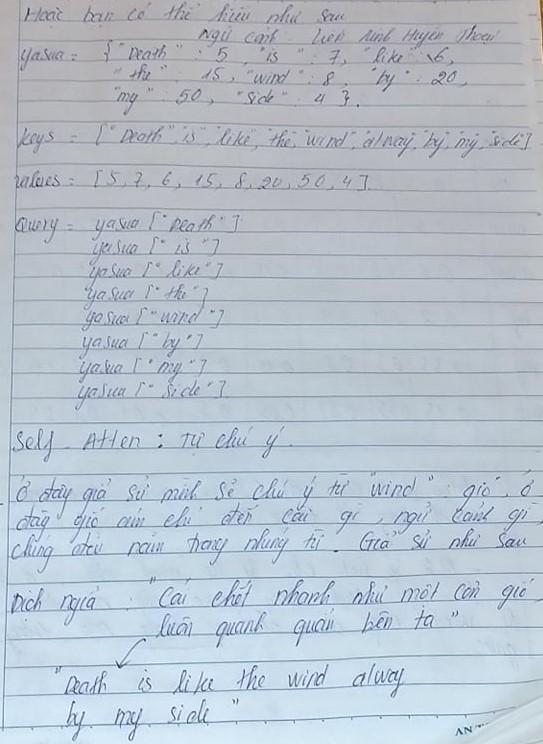 Hoặc bạn có thể hiểu như sau
ngữ cảnh Liên Minh Huyền Thoại
yasua = {"Death" : 5, "is" : 7, "like" : 6,
"the" : 15, "wind" : 8, "by" : 20,
"my" : 50, "side" : 4 }.
keys = ["Death", "is", "like", "the", "wind", "alway", "by", "my", "side"]
values = [5, 7, 6, 15, 8, 20, 50, 4]
Query = yasua ["Death"]
yasua ["is"]
yasua ["like"]
yasua ["the"]
yasua ["wind"]
yasua ["by"]
yasua ["my"]
yasua ["side"]
Self - Atten : Tự chú ý.
Ở đây giả sử mình sẽ chú ý từ "wind" : gió, ở
đây gió ám chỉ đến cái gì, ngữ cảnh gì,
chúng đều nằm trong những từ. Giả sử như sau
Dịch nghĩa : "Cái chết nhanh như một cơn gió,
luôn quanh quẩn bên ta"
"Death is like the wind alway
by my side"